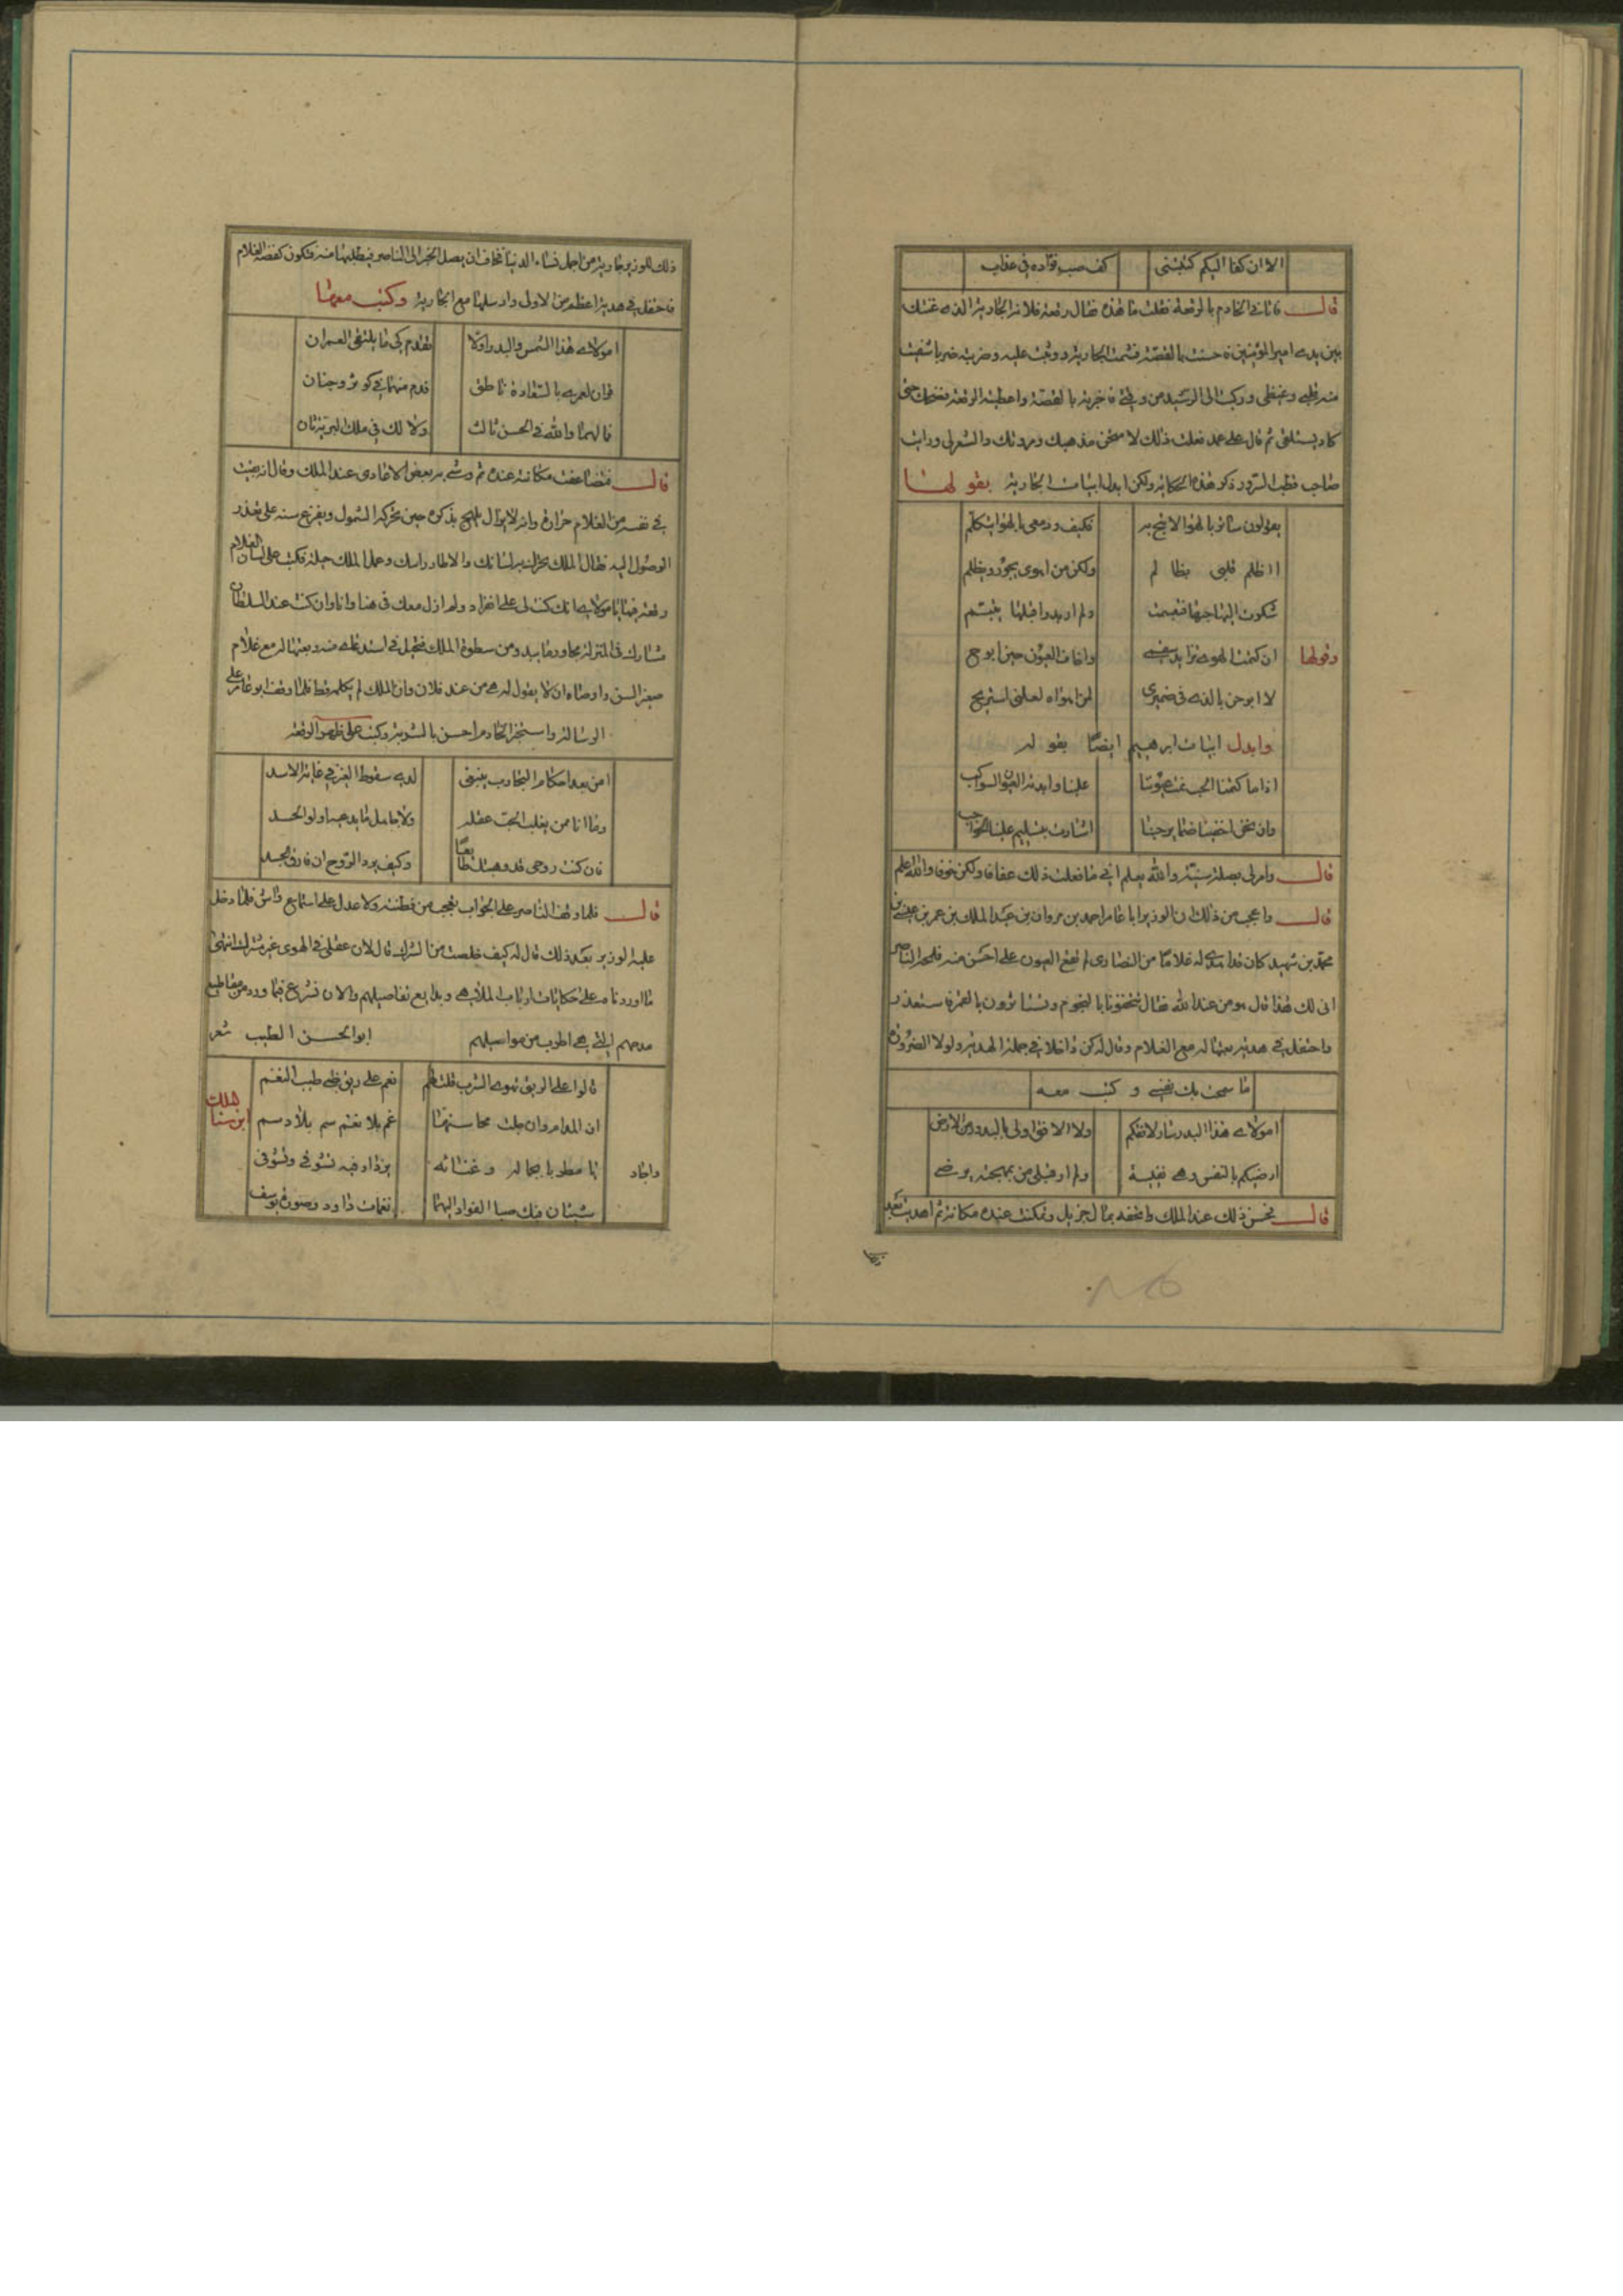 الا ان كفا اليكم كتبتنى كف صب فؤاده فى عذاب
قال فاتانى الخادم بالرقعة فقلت ما هذه فقال رقعة فلانة الجارية الذى غنتك
بين يدى امير المؤمنين فاحسنت بالقصة فشتمت الجارية ووثبت عليه وضربته ضربا شفيت
منه قلبى وغيظى وركبت الى الرشيد من وقتى فاخبرته بالقصة واعطيته الرقعة فضحك حتى
كاد يستلقى ثم قال على عمد فعلت ذلك لامتحن مذهبك ومروتك والشعر لى ورايت
صاحب قطب السرور ذكر هذه الحكاية ولكن ابدل ابيات الجارية بقولها
يقولون ستر بالهوا لا تبح به فكيف ودمعى بالهوا يتكلم
ااظلم قلبى بظالم ولكن من اهوى يجور ويظلم
شكوت اليها حبها فتبسمت ولم ار بدرا قبلها يتبسم
وقولها ان كتمت الهوى تزايد سقمى واخاف العيون حين ابوح
لا ابوحن بالذى فى ضميرى لمن اهواه لعلنى استريح
وابدل ابيات ابرهيم ايضا بقوله
اذا ما كتمنا الحب نمت عيوننا علينا وابدته العيون السواكب
وان نخفى اخفينا ضمايرحبنا اشارت بتسليم علينا الحواجب
قال وامر لى بصلة سنية والله يعلم انى ما فعلت ذلك عفافا ولكن خوفا والله اعلم
قال واعجب من ذلك ان الوزير ابا عامر احمد بن مروان بن عبد الملك بن عمر بن عيسى بن
محمد بن شهيد كان قد اهدى له غلاما من النصارى لم تقع العيون على احسن منه فلمحه الناصر
انى لك هذا قال هو من عند الله فقال تتحفونا بالنجوم وتستاثرون بالقمر فاستعذر
واحتفل فى هدية بعثها له مع الغلام وقال له كن داخلا فى جملة الهدية ولولا الضرورة
ما سمحت بك نفسى وكتب معه
امولاى هذا البدر سار لافقكم ولا الافق اولى بالبدور من الارض
ارضيكم بالنفس وهى نفيسة ولم ار قبلى من بمهجته يرضى
قال فحسن ذلك عند الملك واتحفه بمال جزيل وتمكنت عنده مكانته ثم اهديت بعد
ذلك للوزير جارية من اجمل نساء الدنيا فخاف ان يصل الخبر الى الناصر فيطلبها منه فتكون كقصة الغلام
فاحتفل فى هدية اعظم من الاولى وارسلها مع الجارية وكتب معها
امولاى هذا الشمس والبدر اولا تقدم كى ما يلتقى القمران
قران لعمرى بالسعادة ناطق فدم منهما فى كوثر وجنان
فما لهما والله فى الحسن ثالث ولا لك فى ملك البرية ثان
قال فتضاعفت مكانته عنده ثم وشى به بعض الاعادى عند الملك وقال انه بقيت
فى نفسه من الغلام حرارة وانه لا يزال يلهج بذكره حين تحركه الشمول ويقرع سنه على تعذر
الوصول اليه فقال الملك لا تحرك به لسانك والا طار راسك وعمل الملك حيلة فكتب على لسان الغلام
رقعة فيها يا مولاى انك كنت لى على انفراد ولم ازل معك فى هنا وانا وان كنت عند السلطان
مشارك فى المنزلة محاذر ما يبدو من سطوة الملك فتحيل فى استدعائى منه وبعثها له مع غلام
صغير السن واوصاه ان لا يقول له هى من عند فلان وان الملك لم يكلمه قط فلما وقف ابو عامر على
الرسالة واستخبر الخادم احسن بالشر وكتب على ظهر الرقعة
امن بعد احكام التجارب ينبغى لدى سقوط العير فى غابة الاسد
وما انا ممن يغلب الحب عقله ولا جاهل ما يدعيه اولو الحسد
فان كنت روحى قد وهبتك طائعا وكيف يرد الروح ان فارق الجسد
قال فلما وقف الناصر على الجواب تعجب من فطنته ولا عدل على استماع واش فلما دخل
عليه الوزير بعد ذلك قال له كيف خلصت من الشرك قال لان عقلى فى الهوى غير مشترك انتهى
ما اوردناه على حكايات ارباب الملاهى وبدايع تفاصيلهم والان نشرع فيما ورد من مقاطيع
مدحهم التى هى اطرب من مواصيلهم ابو الحسن الطبيب شعر
قالوا على الريق تهوى الشرب قلت لهم نعم على ريق ظبى طيب النغم
ان المدام وان جلت محاسنها غم بلا نغم سم بلا دسم
ابن سنا الملك
واجاد يا مطربا بجماله وغنائه يزداد فيه تشوقى وتشوفى
شيئان فيك صبا الفؤاد اليهما نغمات داود وصورة يوسف